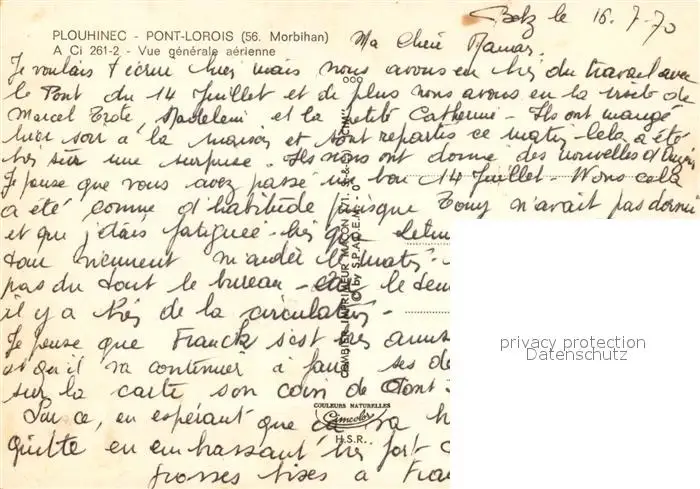 PLOUHINEC - PONT-LOROIS (56. Morbihan)
A Ci 261-2 - Vue générale aérienne
Belz le 16-7-70
Ma Chère Maman,
Je voulais t'écrire hier mais nous avons eu très du travail avec
le Pont du 14 Juillet et de plus nous avons eu la visite de
Marcel Madeleine et la petite Catherine - Ils ont mangé
hier soir à la maison et sont repartis ce matin - Cela a été
très sur une surprise. Ils nous ont donné des nouvelles d'
Je pense que vous avez passé un bon 14 Juillet - Nous cela
a été comme d'habitude puisque Tony n'avait pas dormi
et que j'étais fatiguée -
viennent m'aider le matin -
pas du tout le bureau - le
il y a très de la circulation -
Je pense que Franck s'est très
et qu'il va continuer à faire ses
sur la carte son coin de
Sur ce, en espérant que ça va
quitte en embrassant très fort
grosses bises à
COMBIER IMPRIMEUR MACON
© by S.P.A.D.E.M.
COULEURS NATURELLES
Cimcolor
H.S.R.
privacy protection
Datenschutz